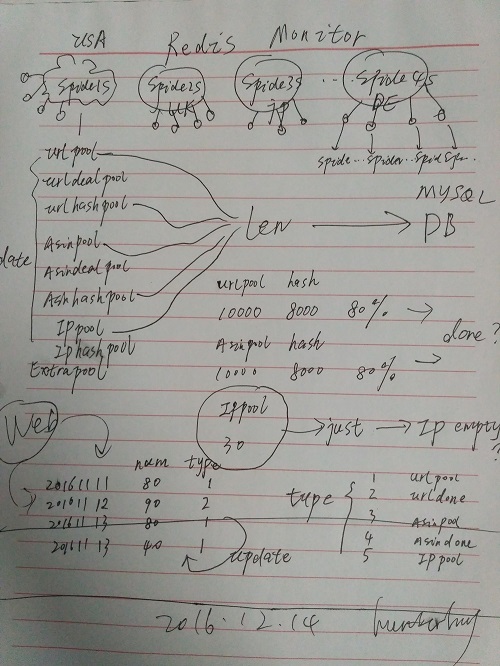 USA Redis Monitor
Spider1s Spider2s Spider3s ... Spider4s
UK JP DE
urlpool spide... spider... spid Spider..
urldealpool
urlhashpool MYSQL
Asinpool len DB
date Asindealpool
Asinhashpool urlpool hash
IPpool 10000 8000 80%
Iphashpool Asinpool hash done?
Extrapool 10000 8000 80%
Web IPpool just Ip empty?
30
num type
20161111 80 1 1 urlpool
20161112 90 2 type 2 urldone
20161113 80 1 3 Asinpool
20161113 40 1 4 Asindone
update 5 IPpool
2016.12.14